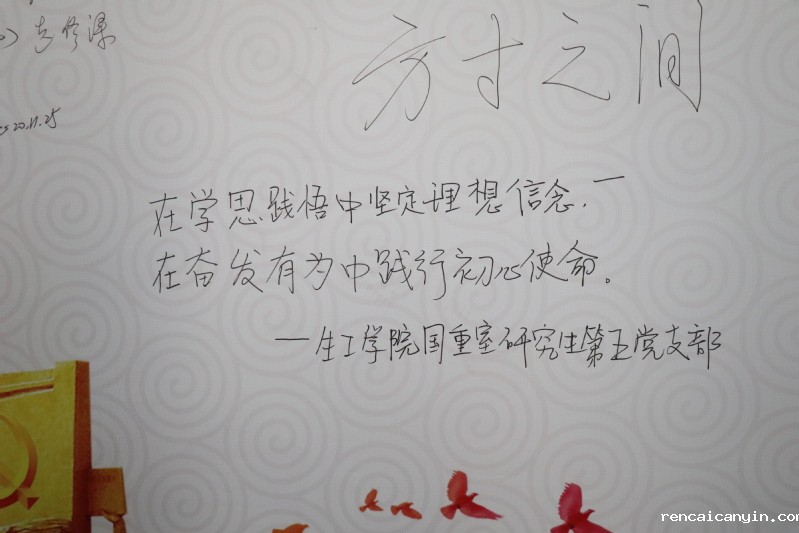 方寸之间
20.11.25
在学思践悟中坚定理想信念，
在奋发有为中践行初心使命。
—生工学院国重室研究生第五党支部
rencaicanyin.com